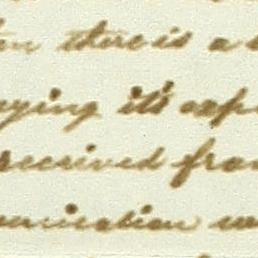 there is a
ying it's exp
received from
unication